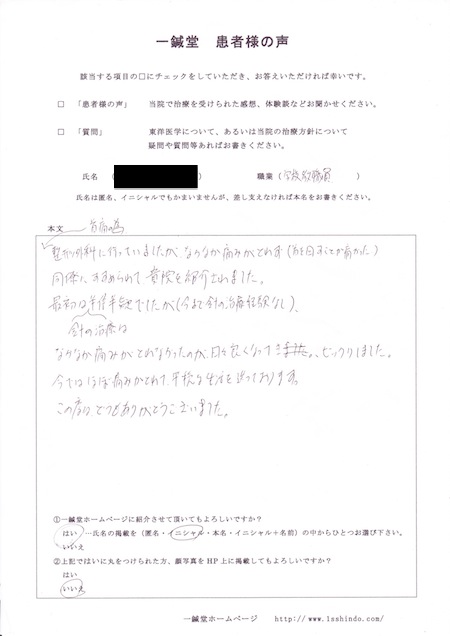 一鍼堂 患者様の声
該当する項目の□にチェックをしていただき、お答えいただければ幸いです。
□ 「患者様の声」 当院で治療を受けられた感想、体験談などお聞かせください。
□ 「質問」 東洋医学について、あるいは当院の治療方針について
疑問や質問等あればお書きください。
氏名 ( ) 職業 (学校教職員)
氏名は匿名、イニシャルでもかまいませんが、差し支えなければ本名をお書きください。
本文 首痛の為
整形外科に行っていましたが、なかなか痛みがとれず(首を回すことが痛かった)
同僚に、すすめられて貴院を紹介されました。
最初は半信半疑でしたが(今まで針の治療経験なし)、
針の治療は
なかなか痛みがとれなかったのが、日々良くなって、ビックリしました。
今ではほぼ痛みがとれて、平穏な生活を送っております。
この度は、とてもありがとうございました。
①一鍼堂ホームページに紹介させて頂いてもよろしいですか?
はい …氏名の掲載を(匿名・イニシャル・本名・イニシャル+名前)の中からひとつお選び下さい。
いいえ
②上記ではいに丸をつけられた方、顔写真をHP上に掲載してもよろしいですか?
はい
いいえ
一鍼堂ホームページ http://www.1sshindo.com/